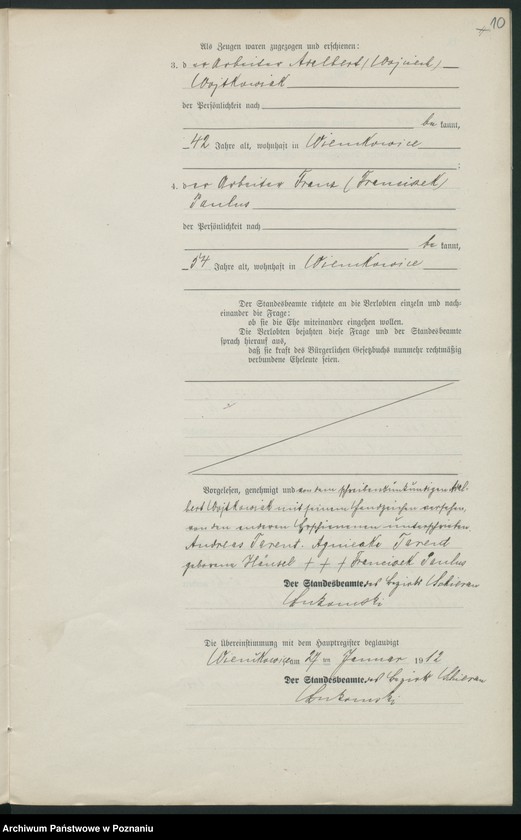 10
Als Zeugen waren zugezogen und erschienen:
3. der Arbeiter Adelbert (Wojciech)
Wojtkowiak
der Persönlichkeit nach
bekannt,
42 Jahre alt, wohnhaft in
;
4. der Arbeiter Franz (Franciszek)
Paulus
der Persönlichkeit nach
bekannt,
54 Jahre alt, wohnhaft in
Der Standesbeamte richtete an die Verlobten einzeln und nach-
einander die Frage:
ob sie die Ehe miteinander eingehen wollen.
Die Verlobten bejahten diese Frage und der Standesbeamte
sprach hierauf aus,
daß sie kraft des Bürgerlichen Gesetzbuchs nunmehr rechtmäßig
verbundene Eheleute seien.
Vorgelesen, genehmigt und von dem schreibensunkundigen Adel-
bert Wojtkowiak mit seinem Handzeichen versehen,
von den anderen Erschienenen unterschrieben.
Andreas Agnieszka
geborene Hänsel + + + Franciszek Paulus
Der Standesbeamte. des Bezirks
Die Übereinstimmung mit dem Hauptregister beglaubigt
am 27 ten Januar 1912
Der Standesbeamte. des Bezirks
Archiwum Państwowe w Poznaniu
szukajwarchiwach.gov.pl